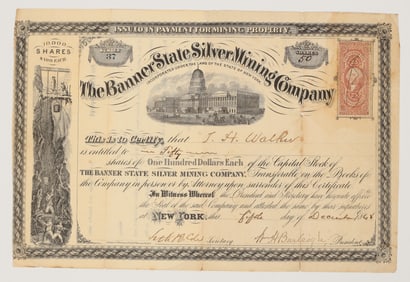 ISSUED IN PAYMENT FOR MINING PROPERTY.
10,000
SHARES
$100 EACH
37
SHARES
50
The Banner State Silver Mining Company
INCORPORATED UNDER THE LAWS OF THE STATE OF NEW YORK
This is to Certify, that J. H. Walker
is entitled to Fifty
shares of One Hundred Dollars Each of the Capital Stock of
THE BANNER STATE SILVER MINING COMPANY. Transferable on the Books of
the Company in person or by Attorney upon surrender of this Certificate
In Witness Whereof the President and Secretary have hereunto affixed
the Seal of the said Company and attached the same by their signatures
at NEW YORK, this fifth day of December 186
Secretary
President